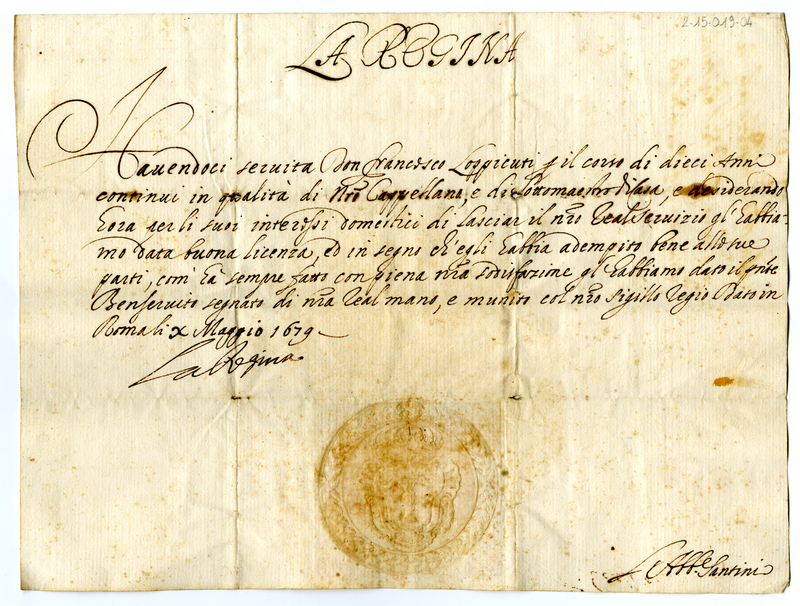 2-15-019-04
LA REGINA
Havendoci servita Don Francesco Loppicuti p il corso di dieci Anni
continui in qualità di Nrõ Cappellano, e di Sottomaestro di Casa, e desiderando
hora per li suoi interessi domestici di lasciar il nrõ Real Servizio gl'habbia-
mo data buona licenza, ed in segno ch'egli habbia adempito bene alle sue
parti, com'hà sempre fatto con piena nrã sodisfazione gl'habbiamo dato il pñte
Benservito segnato di nrã Real mano, e munito col nrõ sigillo Regio Dato in
Roma li x Maggio 1679
La Regina
L'Abb.e Santini